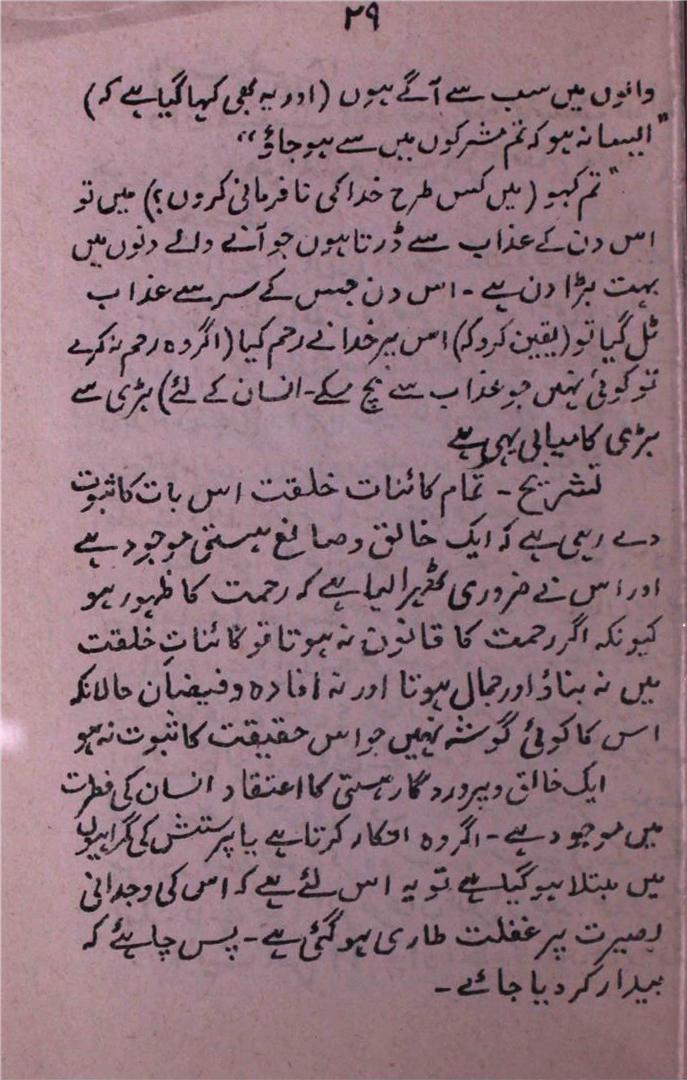 ۲۹
والوں میں سب سے آگے ہوں (اور یہ بھی کہا گیا ہے کہ)
"ایسا نہ ہو کہ تم مشرکوں میں سے ہو جاؤ"
"تم کہو (میں کس طرح خدا کی نافرمانی کروں؟) میں تو
اس دن کے عذاب سے ڈرتا ہوں جو آنے والے دنوں میں
بہت بڑا دن ہے - اس دن جس کے سر سے عذاب
ٹل گیا تو (یقین کرو کہ) اس پر خدا نے رحم کیا (اگر وہ رحم نہ کرے
تو کوئی نہیں جو عذاب سے بچ سکے - انسان کے لئے) بڑی سے
بڑی کامیابی یہی ہے
تشریح - تمام کائنات خلقت اس بات کا ثبوت
دے رہی ہے کہ ایک خالق و صانع ہستی موجود ہے
اور اس نے ضروری ٹھہرا لیا ہے کہ رحمت کا ظہور ہو
کیونکہ اگر رحمت کا قانون نہ ہوتا تو کائناتِ خلقت
میں نہ بناؤ اور جمال ہوتا اور نہ افادہ و فیضان حالانکہ
اس کا کوئی گوشہ نہیں جو اس حقیقت کا ثبوت نہ ہو
ایک خالق و پروردگار ہستی کا اعتقاد انسان کی فطرت
میں موجود ہے - اگر وہ انکار کرتا ہے یا پرستش کی گمراہیوں
میں مبتلا ہو گیا ہے تو یہ اس لئے ہے کہ اس کی وجدانی
بصیرت پر غفلت طاری ہو گئی ہے - پس چاہئے کہ
بیدار کر دیا جائے -